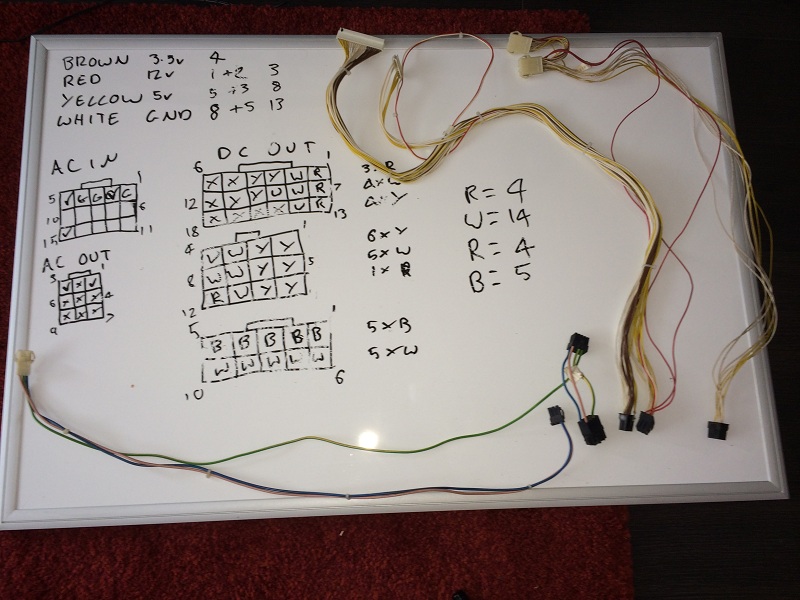 BROWN 3.3v 4
RED 12v 1+2 3
YELLOW 5v 5+3 8
WHITE GND 8+5 13
AC IN
5 1
10 6
15 11
AC OUT
3 1
6 4
9 7
DC OUT
6 1
X X Y Y W R
12 7
X Y Y W W R
18 13
X X X X W R
3 x R
4 x W
4 x Y
4 1
W W Y Y
8 5
W W Y Y
12
R W Y Y
6 x Y
5 x W
1 x R
5
B B B B B
W W W W W
10 6
5 x B
5 x W
R = 4
W = 14
R = 4
B = 5